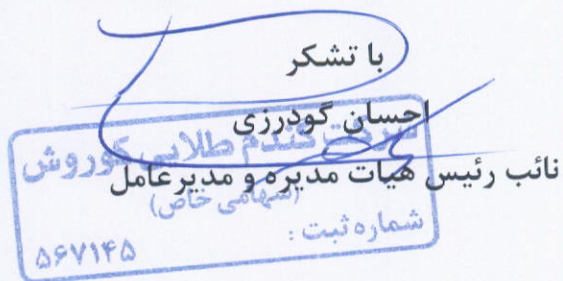 با تشکر
احسان گودرزی
نائب رئیس هیات مدیره و مدیرعامل
شرکت گندم طلایی کوروش
(سهامی خاص)
شماره ثبت :
۵۶۷۱۴۵